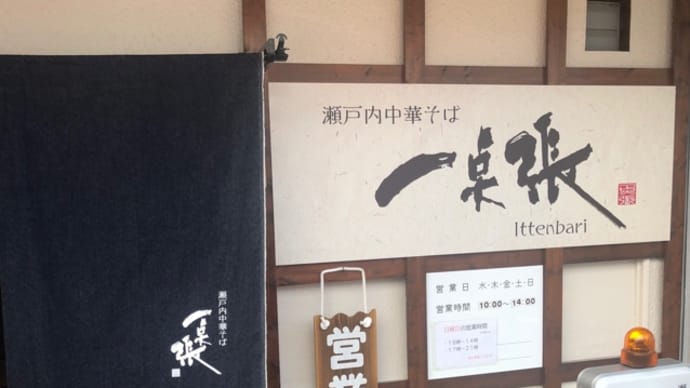 瀬戸内中華そば
一点張
Ittenbari
瀬戸内中華そば
一点張
営業
営業日 水・木・金・土・日
営業時間 10:00～14:00
日曜日の営業時間